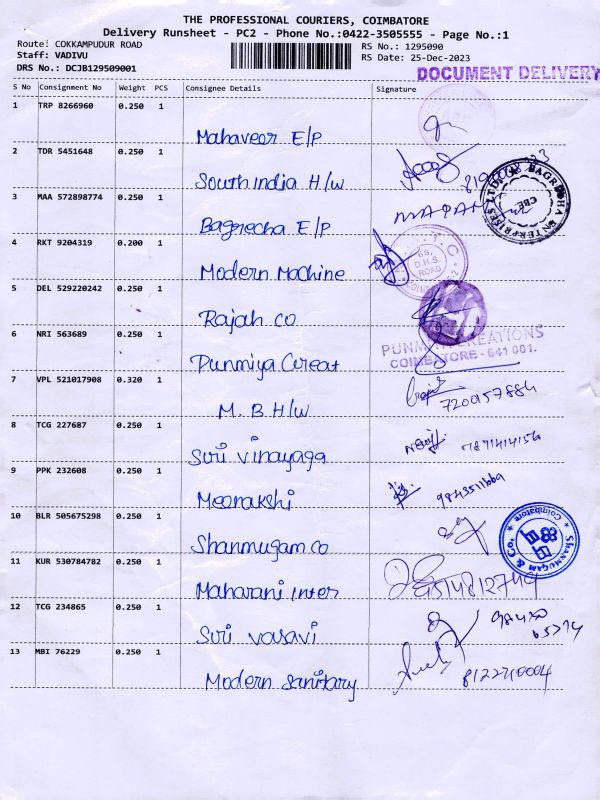 THE PROFESSIONAL COURIERS, COIMBATORE
Delivery Runsheet - PC2 - Phone No.:0422-3505555 - Page No.:1
Route: COKKAMPUDUR ROAD
Staff: VADIVU
DRS No.: DCJB129509001
RS No.: 1295090
RS Date: 25-Dec-2023
DOCUMENT DELIVERY
S No Consignment No Weight PCS Consignee Details Signature
1 TRP 8266960 0.250 1
Mahaveer E/P
2 TDR 5451648 0.250 1
South India H/W
3 MAA 572898774 0.250 1
Bagrecha E/P
BAGRECHA ENTERPRISES LTD. CBE.
4 RKT 9204319 0.200 1
Modern Machine
A.T.C. D.H.S. ROAD
5 DEL 529220242 0.250 1
Rajah co
6 NRI 563689 0.250 1
Punmiya Creat
PUNMIYA CREATIONS
COIMBATORE - 641 001.
7 VPL 521017908 0.320 1
M.B H/W
8 TCG 227687 0.250 1
Siri Vinayaga
9 PPK 232608 0.250 1
Meenakshi
10 BLR 505675298 0.250 1
Shanmugam co
SHANMUGAM & CO. Coimbatore
11 KUR 530784782 0.250 1
Maharani Inter
12 TCG 234865 0.250 1
Siri vasavi
13 MBI 76229 0.250 1
Modern Sanitary
8122710004